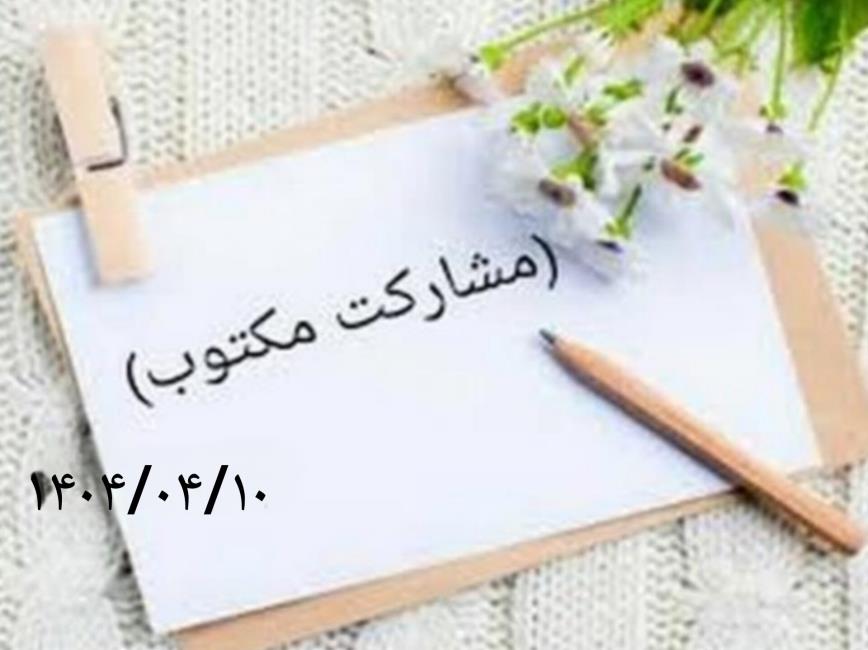 (مشارکت مکتوب)
۱۴۰۴/۰۴/۱۰